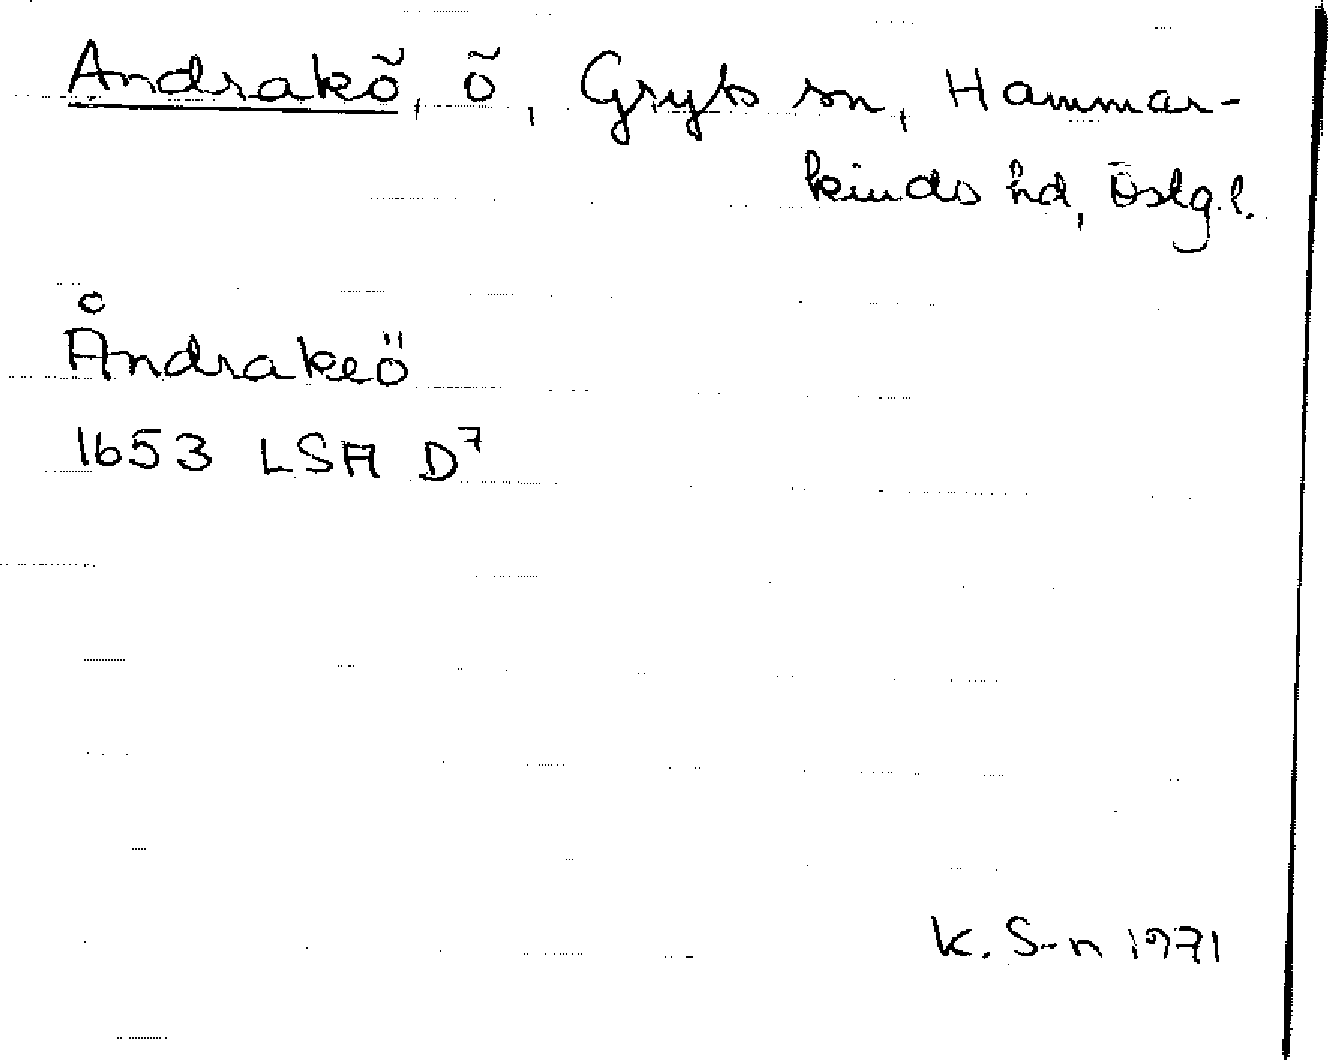 Andrakö, ö, Gryts sn, Hammar-
kinds hd, Östg.l.
Åndrakeö
1653 LSA D⁷
K. S-n 1971